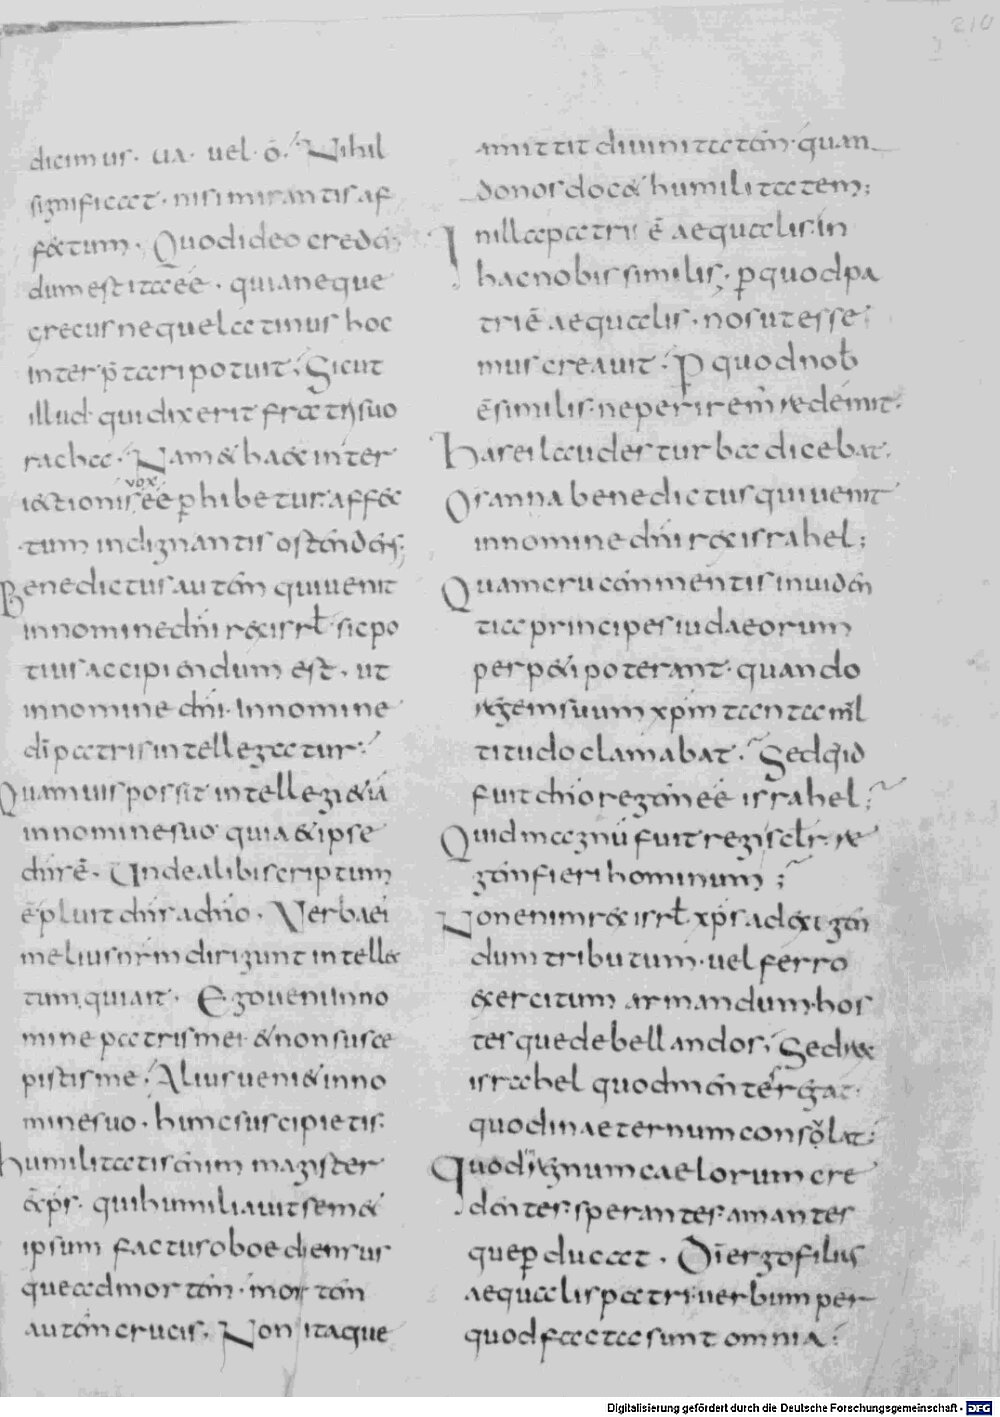 210
dicimus. ua. uel. ó. Nihil
significat. nisi mirantis af
fectum. Quod ideo creden
dum est ita eē. quia neque
grecus neque latinus hoc
interp̄tari potuit. Sicut
illud qui dixerit fratri suo
racha. Nam & haec inter
vox
iectionis eē phibetur. affec
tum indignantis ostendens;
Benedictus autem qui uenit
in nomine dn̄i rex isrł. sic po
tius accipiendum est. ut
in nomine dn̄i. In nomine
dī patris intellegatur.
Quamuis possit intellegi etiā
in nomine suo quia & ipse
dn̄s ē. Unde alibi scriptum
ē pluit dn̄s a dn̄o. Verba ei
melius nr̄m dirigunt intellec
tum. qui ait. Ego ueni in no
mine patris mei & non susce
pistis me. Alius ueniet in no
mine suo. hunc suscipietis.
humilitatis enim magister
ē xp̄s. qui humiliauit semet
ipsum factus oboediens us
que ad mortem. mortem
autem crucis. Non itaque
amittit diuinitatem. quan
do nos docet humilitatem;
In illa patri ē aequalis. in
hac nobis similis. p quod pa
tri ē aequalis. nos ut esse
mus creauit. P quod nob̄
ē similis. ne periremus redemit.
Has ei laudes turba dicebat.
Osanna benedictus qui uenit
in nomine dn̄i rex israhel;
Quam crucem mentis inuiden
tia principes iudaeorum
perpeti poterant. quando
regem suum xp̄m tanta ml
titudo clamabat. Sed qid
fuit dn̄o regem eē israhel;
Quid magnū fuit regi sc̄lr. re
gem fieri hominum;
Non enim rex isrł xp̄s ad exigen
dum tributum. uel ferro
exercitum armandum. hos
tesque debellandos. Sed rex
israhel quod mentes regat.
quod in aeternum consolat.
Quod in regnum caelorum cre
dentes. sperantes. amantes
que pducat. Dī ergo filius
aequalis patri. uerbum per
quod facta sunt omnia.
Digitalisierung gefördert durch die Deutsche Forschungsgemeinschaft - DFG